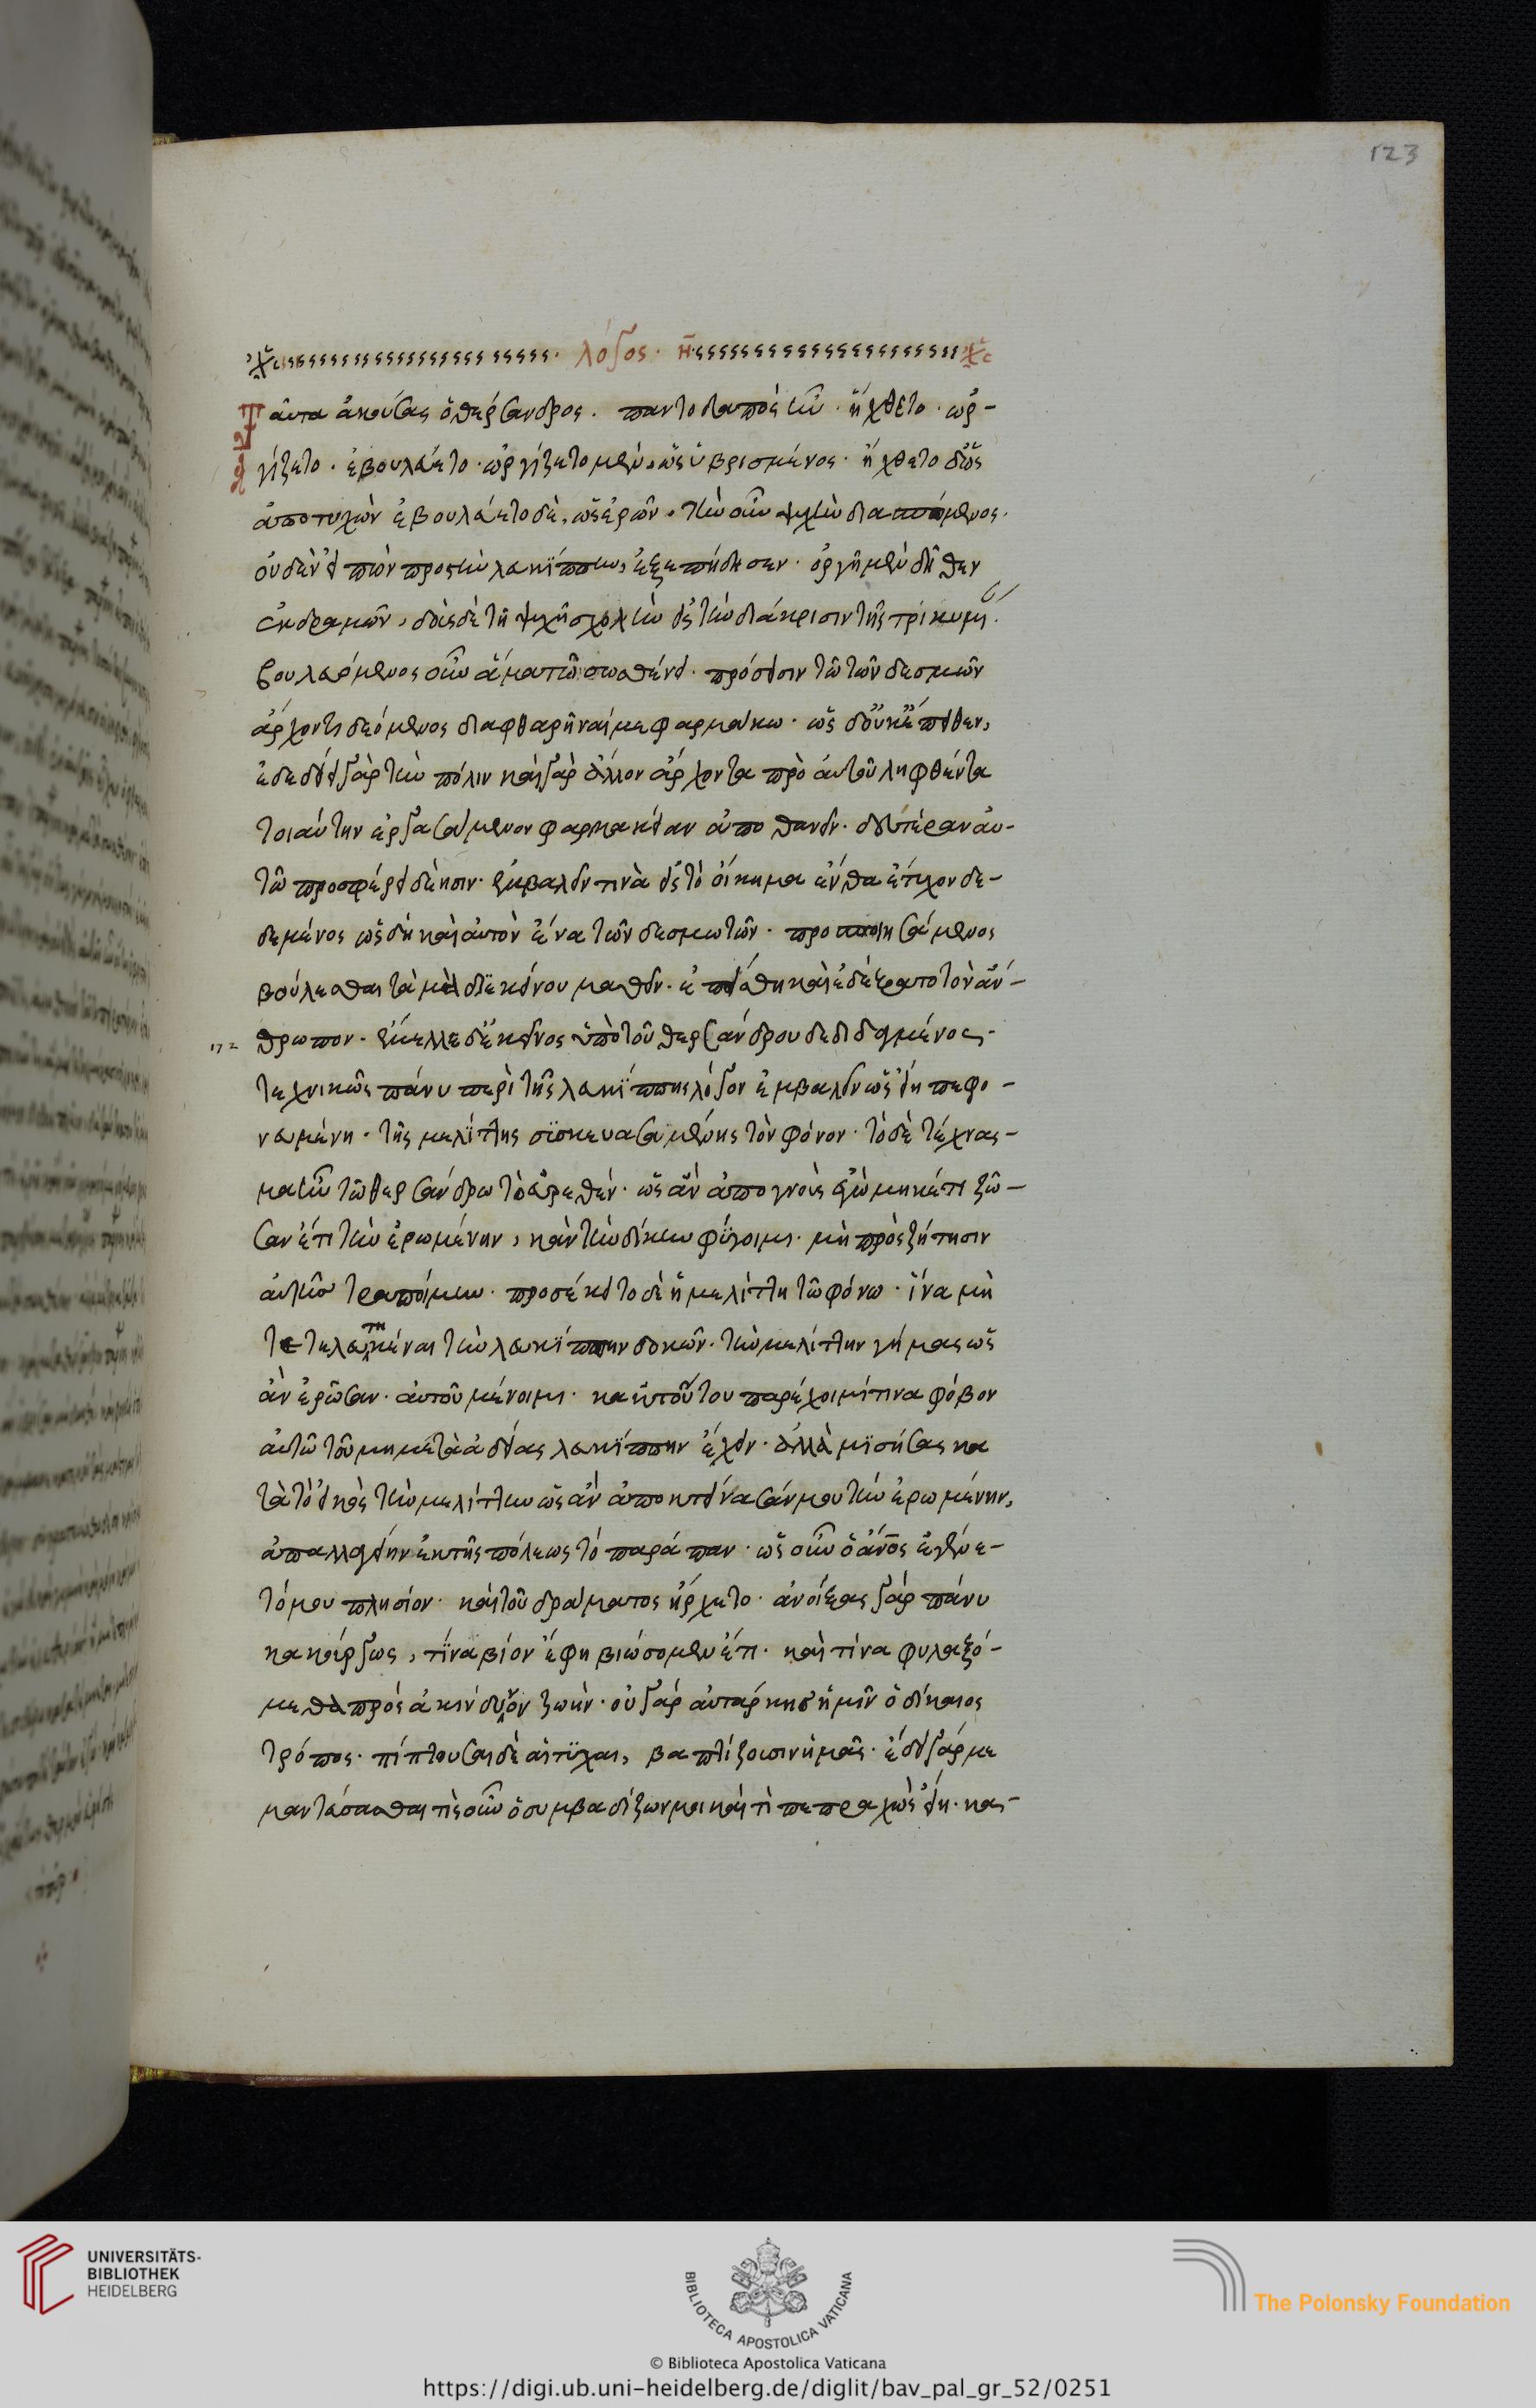 123
λόγος · η̄
Ταῦτα ἀκούσας ὁ θέρσανδρος · παντοδαπὸς ἦν · ἤχθετο · ὠρ-
γίζετο · ἐβουλεύετο · ὠργίζετο μὲν, ὡς ὑβρισμένος · ἤχθετο δὲ ὡς
ἀποτυχὼν ἐβουλεύετο δὲ, ὡς ἐρῶν · τὴν οὖν ψυχὴν διασπώμενος ·
οὐδὲν εἰπὼν πρὸς τὴν λευκίππην, ἐξεπήδησεν · ὀργῇ μὲν δῆθεν
ἐκδραμὼν, δοὺς δὲ τῇ ψυχῇ σχολὴν εἰς τὴν διάκρισιν τῆς τρικυμί
βουλευόμενος οὖν ἅμα τῶ σωσθένει · πρόσεισιν τῶ τῶν δεσμῶν
ἄρχοντι δεόμενος διαφθαρῆναί με φαρμάκω · ὡς δ' οὐκ ἔπειθεν,
ἐδεδίει γὰρ τὴν πόλιν καὶ γὰρ ἄλλον ἄρχοντα πρὸ αὐτοῦ ληφθέντα
τοιαύτην ἐργασάμενον φαρμακείαν ἀποθανεῖν · δευτέραν αὐ-
τῶ προσφέρει δέησιν · ἐμβαλεῖν τινὰ εἰς τὸ οἴκημα ἔνθα ἔτυχον δε-
δεμένος ὡς δὴ καὶ αὐτὸν ἕνα τῶν δεσμωτῶν · προσποιησάμενος
βούλεσθαι τἀμὰ δι' ἐκείνου μαθεῖν · ἐπείσθη καὶ ἐδέξατο τὸν ἄν-
θρωπον · ἔμελλε δ' ἐκεῖνος ὑπὸ τοῦ θερσάνδρου δεδιδαγμένος
τεχνικῶς πάνυ περὶ τῆς λευκίππης λόγον ἐμβαλεῖν ὡς εἴη πεφο-
νευμένη · τῆς μελίττης συσκευασαμένης τὸν φόνον · τὸ δὲ τέχνας-
μα ἦν τῶ θερσάνδρω τὸ εὑρεθέν · ὡς ἂν ἀπογνοὺς ἐγὼ μηκέτι ζῶ-
σαν ἔτι τὴν ἐρωμένην, κἂν τὴν δίκην φύγοιμι · μὴ πρὸς ζήτησιν
αὐτῆς τραποίμην · προσέκειτο δὲ ἡ μελίττη τῶ φόνω · ἵνα μὴ
τετελευτηκέναι τὴν λευκίππην δοκῶν · τὴν μελίττην γήμας ὡς
ἂν ἐρῶσαν · αὐτοῦ μένοιμι · κἀκ τούτου παρέχοιμί τινα φόβον
αὐτῶ τοῦ μὴ μετὰ ἀδείας λευκίππην ἔχειν · ἀλλὰ μισήσας κα
τὰ τὸ εἰκὸς τὴν μελίττην ὡς ἂν ἀποκτείνασάν μου τὴν ἐρωμένην,
ἀπαλλαγείην ἐκ τῆς πόλεως τὸ παράπαν · ὡς οὖν ὁ ἄνο̄ς ἐγένε-
τό μου πλησίον · καὶ τοῦ δράματος ἤρχετο · ἀνοίξας γὰρ πάνυ
κακούργως, τίνα βίον ἔφη βιώσομεν ἔτι · καὶ τίνα φυλαξό-
μεθα πρὸς ἀκίνδυνον ζωήν · οὐ γὰρ αὐτάρκης ἡμῖν ὁ δίκαιος
τρόπος · πίπτουσαι δὲ αἱ τύχαι, βαπτίζουσιν ἡμᾶς · ἔδει γάρ με
μαντεύσασθαι τίς οὖν ὁ συμβαδίζων μοι καὶ τί πεπραχὼς εἴη · καὶ
UNIVERSITÄTS-
BIBLIOTHEK
HEIDELBERG
BIBLIOTECA APOSTOLICA VATICANA
The Polonsky Foundation
© Biblioteca Apostolica Vaticana
https://digi.ub.uni-heidelberg.de/diglit/bav_pal_gr_52/0251